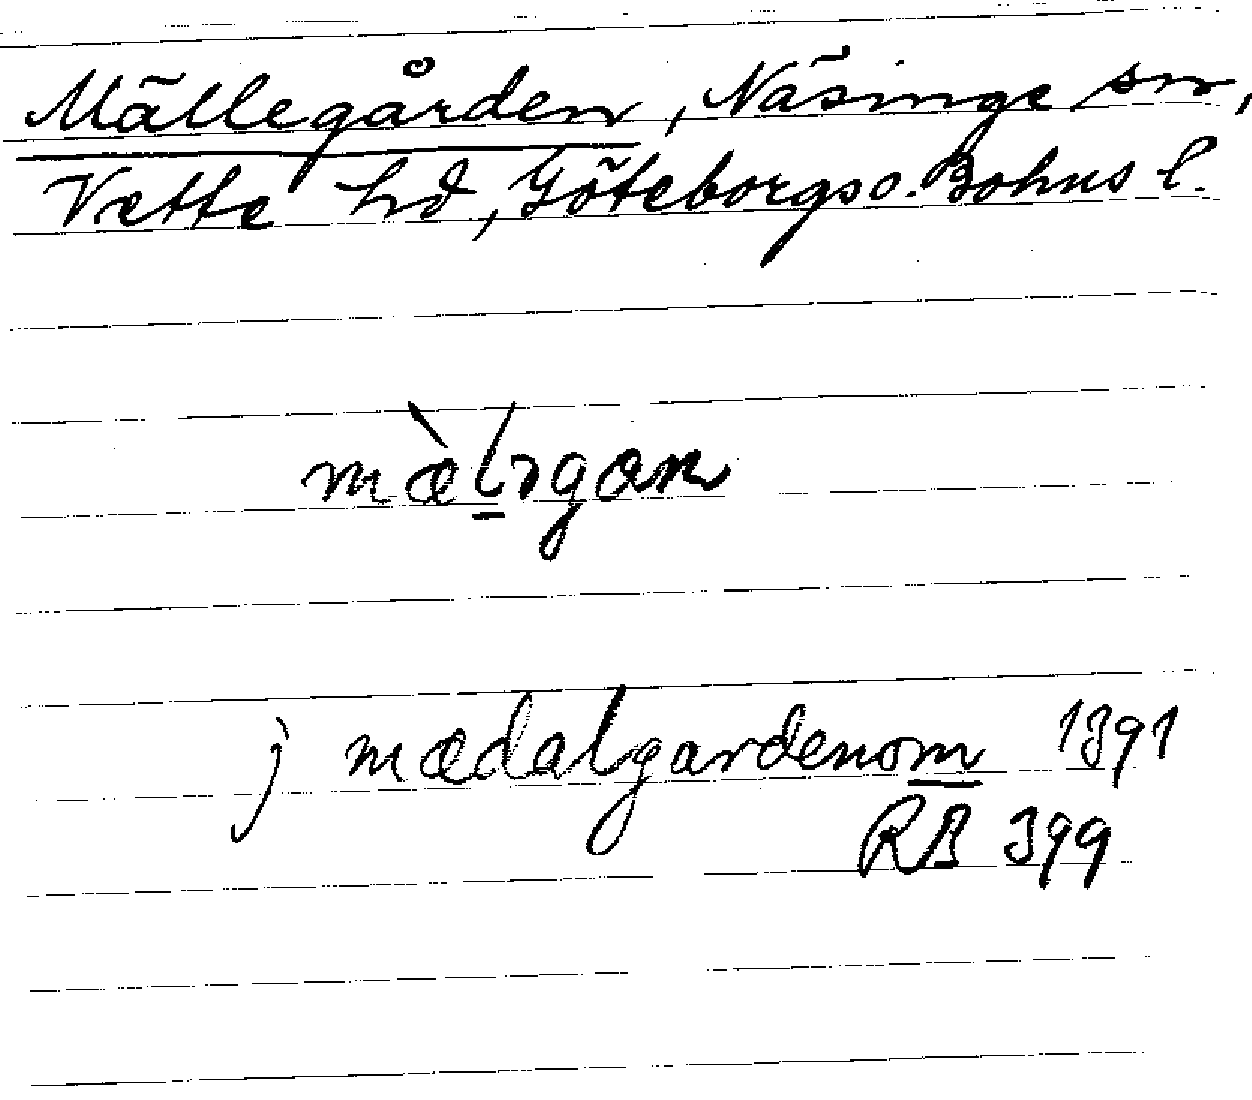 Mällegården, Näsinge sn,
Vette hd, Göteborgs o. Bohus l.
mæ̀lıgan
j mædalgardenom 1391
RB 399